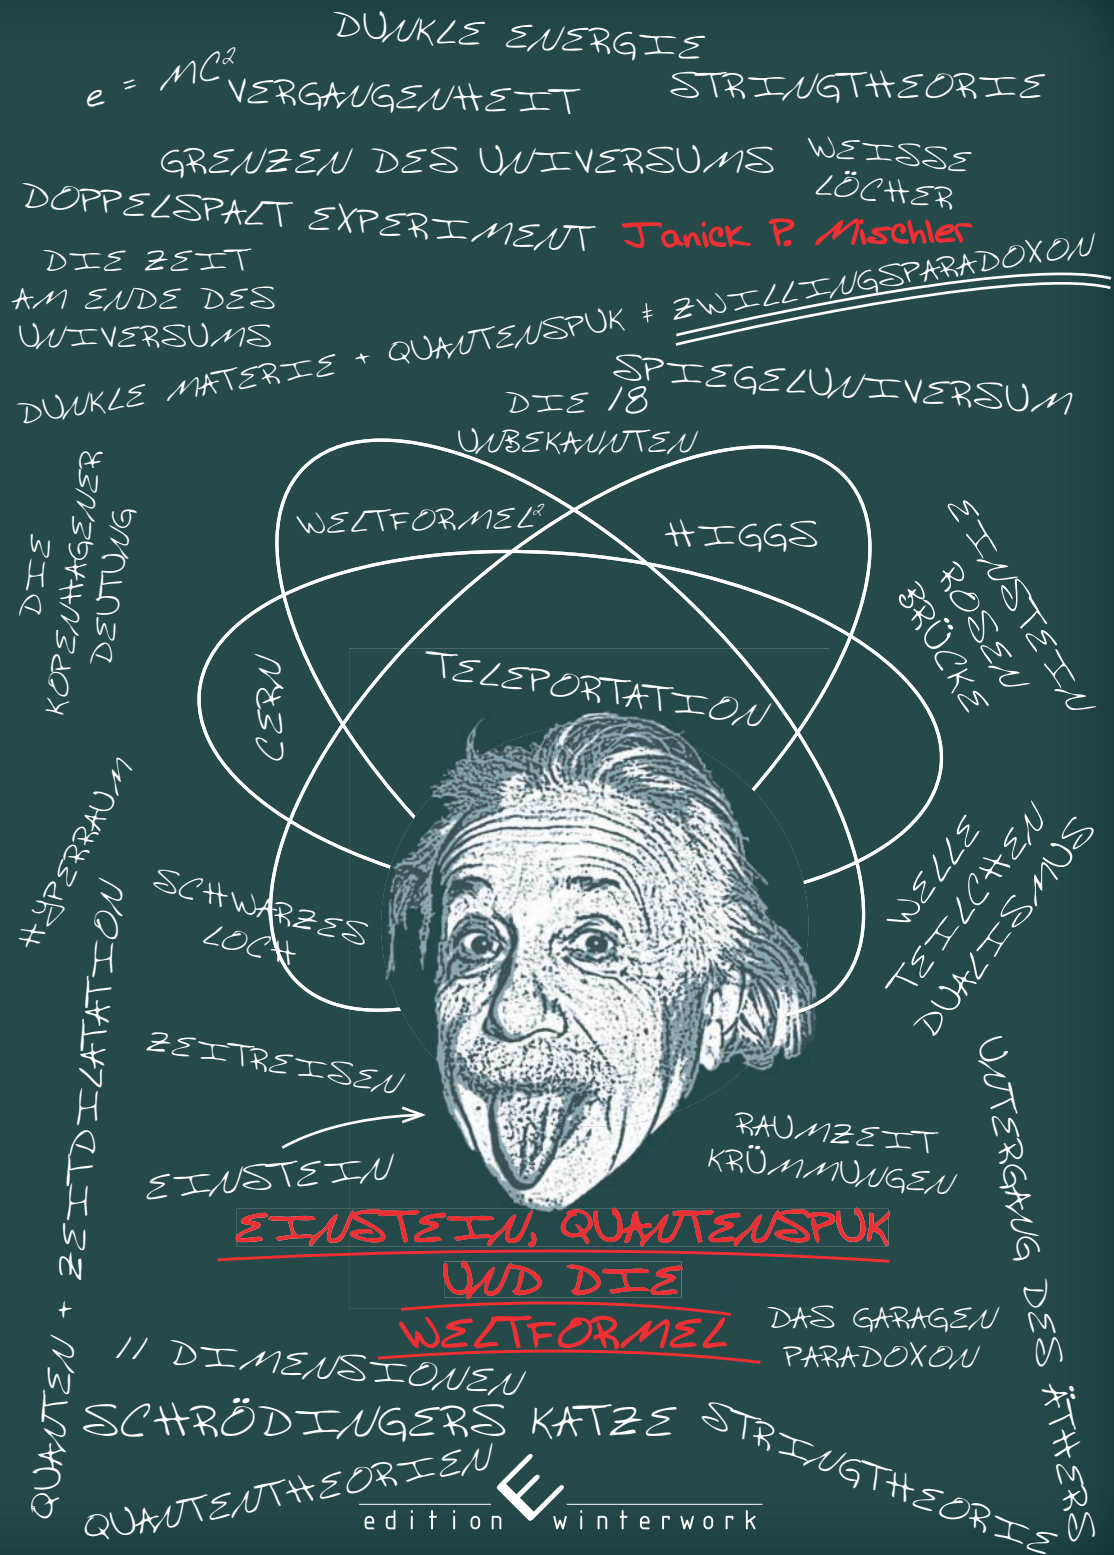 DUNKLE ENERGIE
e = MC²
VERGANGENHEIT
STRINGTHEORIE
GRENZEN DES UNIVERSUMS
WEISSE
LÖCHER
DOPPELSPALT EXPERIMENT
Janick P. Mischler
DIE ZEIT
AM ENDE DES
UNIVERSUMS
DUNKLE MATERIE + QUANTENSPUK ‡ ZWILLINGSPARADOXON
SPIEGELUNIVERSUM
DIE 18
UNBEKANNTEN
DIE
KOPENHAGENER
DEUTUNG
WELTFORMEL²
HIGGS
EINSTEIN
ROSEN
BRÜCKE
CERN
TELEPORTATION
HYPERRAUM
SCHWARZES
LOCH
WELLE
TEILCHEN
DUALISMUS
ZEITREISEN
EINSTEIN
RAUMZEIT
KRÜMMUNGEN
QUANTEN + ZEITDILATATION
UNTERGANG DES ÄTHERS
EINSTEIN, QUANTENSPUK
UND DIE
WELTFORMEL
DAS GARAGEN
PARADOXON
11 DIMENSIONEN
SCHRÖDINGERS KATZE
STRINGTHEORIE
QUANTENTHEORIEN
edition winterwork